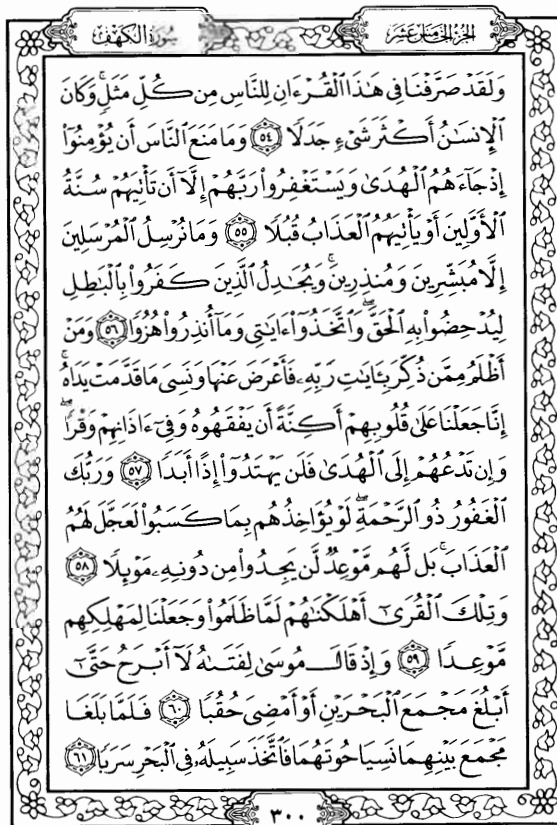 الجزء الخامس عشر
سورة الكهف
وَلَقَدْ صَرَّفْنَا فِى هَـٰذَا ٱلْقُرْءَانِ لِلنَّاسِ مِن كُلِّ مَثَلٍۚ وَكَانَ
ٱلْإِنسَـٰنُ أَكْثَرَ شَىْءٍ جَدَلًا ٥٤ وَمَا مَنَعَ ٱلنَّاسَ أَن يُؤْمِنُوٓا۟
إِذْ جَآءَهُمُ ٱلْهُدَىٰ وَيَسْتَغْفِرُوا۟ رَبَّهُمْ إِلَّآ أَن تَأْتِيَهُمْ سُنَّةُ
ٱلْأَوَّلِينَ أَوْ يَأْتِيَهُمُ ٱلْعَذَابُ قُبُلًا ٥٥ وَمَا نُرْسِلُ ٱلْمُرْسَلِينَ
إِلَّا مُبَشِّرِينَ وَمُنذِرِينَۚ وَيُجَـٰدِلُ ٱلَّذِينَ كَفَرُوا۟ بِٱلْبَـٰطِلِ
لِيُدْحِضُوا۟ بِهِ ٱلْحَقَّۖ وَٱتَّخَذُوٓا۟ ءَايَـٰتِى وَمَآ أُنذِرُوا۟ هُزُوًا ٥٦ وَمَنْ
أَظْلَمُ مِمَّن ذُكِّرَ بِـَٔايَـٰتِ رَبِّهِۦ فَأَعْرَضَ عَنْهَا وَنَسِىَ مَا قَدَّمَتْ يَدَاهُۚ
إِنَّا جَعَلْنَا عَلَىٰ قُلُوبِهِمْ أَكِنَّةً أَن يَفْقَهُوهُ وَفِىٓ ءَاذَانِهِمْ وَقْرًاۖ
وَإِن تَدْعُهُمْ إِلَى ٱلْهُدَىٰ فَلَن يَهْتَدُوٓا۟ إِذًا أَبَدًا ٥٧ وَرَبُّكَ
ٱلْغَفُورُ ذُو ٱلرَّحْمَةِۖ لَوْ يُؤَاخِذُهُم بِمَا كَسَبُوا۟ لَعَجَّلَ لَهُمُ
ٱلْعَذَابَۚ بَل لَّهُم مَّوْعِدٌ لَّن يَجِدُوا۟ مِن دُونِهِۦ مَوْئِلًا ٥٨
وَتِلْكَ ٱلْقُرَىٰٓ أَهْلَكْنَـٰهُمْ لَمَّا ظَلَمُوا۟ وَجَعَلْنَا لِمَهْلِكِهِم
مَّوْعِدًا ٥٩ وَإِذْ قَالَ مُوسَىٰ لِفَتَىٰهُ لَآ أَبْرَحُ حَتَّىٰٓ
أَبْلُغَ مَجْمَعَ ٱلْبَحْرَيْنِ أَوْ أَمْضِىَ حُقُبًا ٦٠ فَلَمَّا بَلَغَا
مَجْمَعَ بَيْنِهِمَا نَسِيَا حُوتَهُمَا فَٱتَّخَذَ سَبِيلَهُۥ فِى ٱلْبَحْرِ سَرَبًا ٦١
٣٠٠